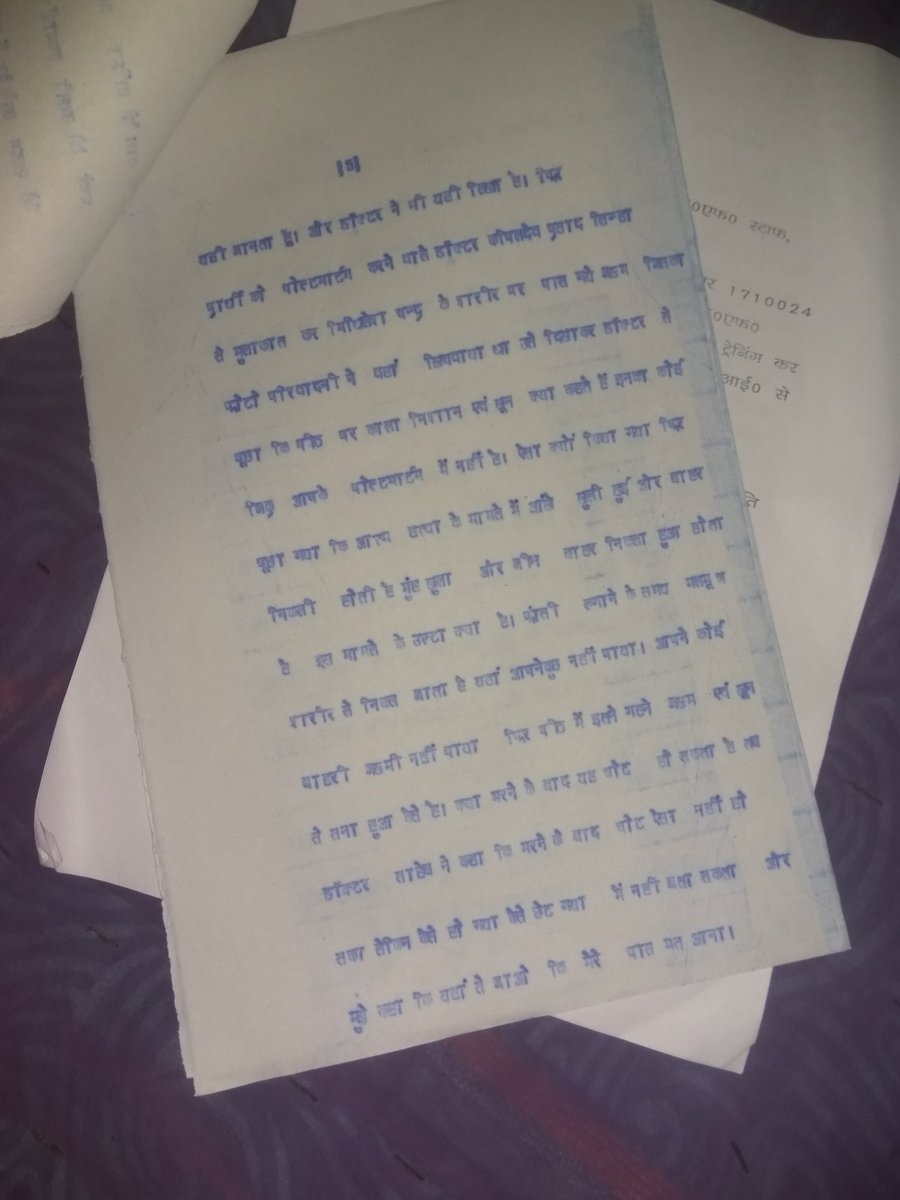 ||5||
यही मानता है। और डॉक्टर ने भी यही लिखा है। फिर
प्रार्थी जो पोस्टमार्टम करने वाले डॉक्टर कपिलदेव प्रसाद सिन्हा
से मुलाकात कर मिथिलेश चन्द्र के शरीर पर पाये गये जख्म जिसका
फोटो परिवादिनी ने यहां खिचवाया था उसे दिखाकर डॉक्टर से
पूछा कि पीठ पर काला निशान एवं खून क्या कहते हैं इनका कोई
जिक्र आपके पोस्टमार्टम में नहीं है। ऐसा क्यों किया गया फिर
पूछा गया कि आत्म हत्या के मामले में आंखे खुली हुई और बाहर
निकली होती है मुंह खुला और जीभ बाहर निकला हुआ होता
है इस मामले के उल्टा क्या है। फांसी लगाने के समय मलमूत्र
शरीर से निकल जाता है यहां आपने कुछ नहीं पाया। आपने कोई
बाहरी जख्मी नहीं पाया फिर पीठ में इतने गहरे जख्म एवं खून
से सना हुआ कैसे है। क्या मरने के बाद यह चोट हो सकता है तब
डॉक्टर साहेब ने कहा कि मरने के बाद चोट ऐसा नहीं हो
सका लेकिन कैसे हो गया कैसे छूट गया मैं नहीं बता सकता और
मुझे कहा कि यहां से जाओ कि मेरे पास मत आना।
०एफ० स्टाफ,
र 1710024
०एफ०
ट्रेनिंग कर
आई० से
ति